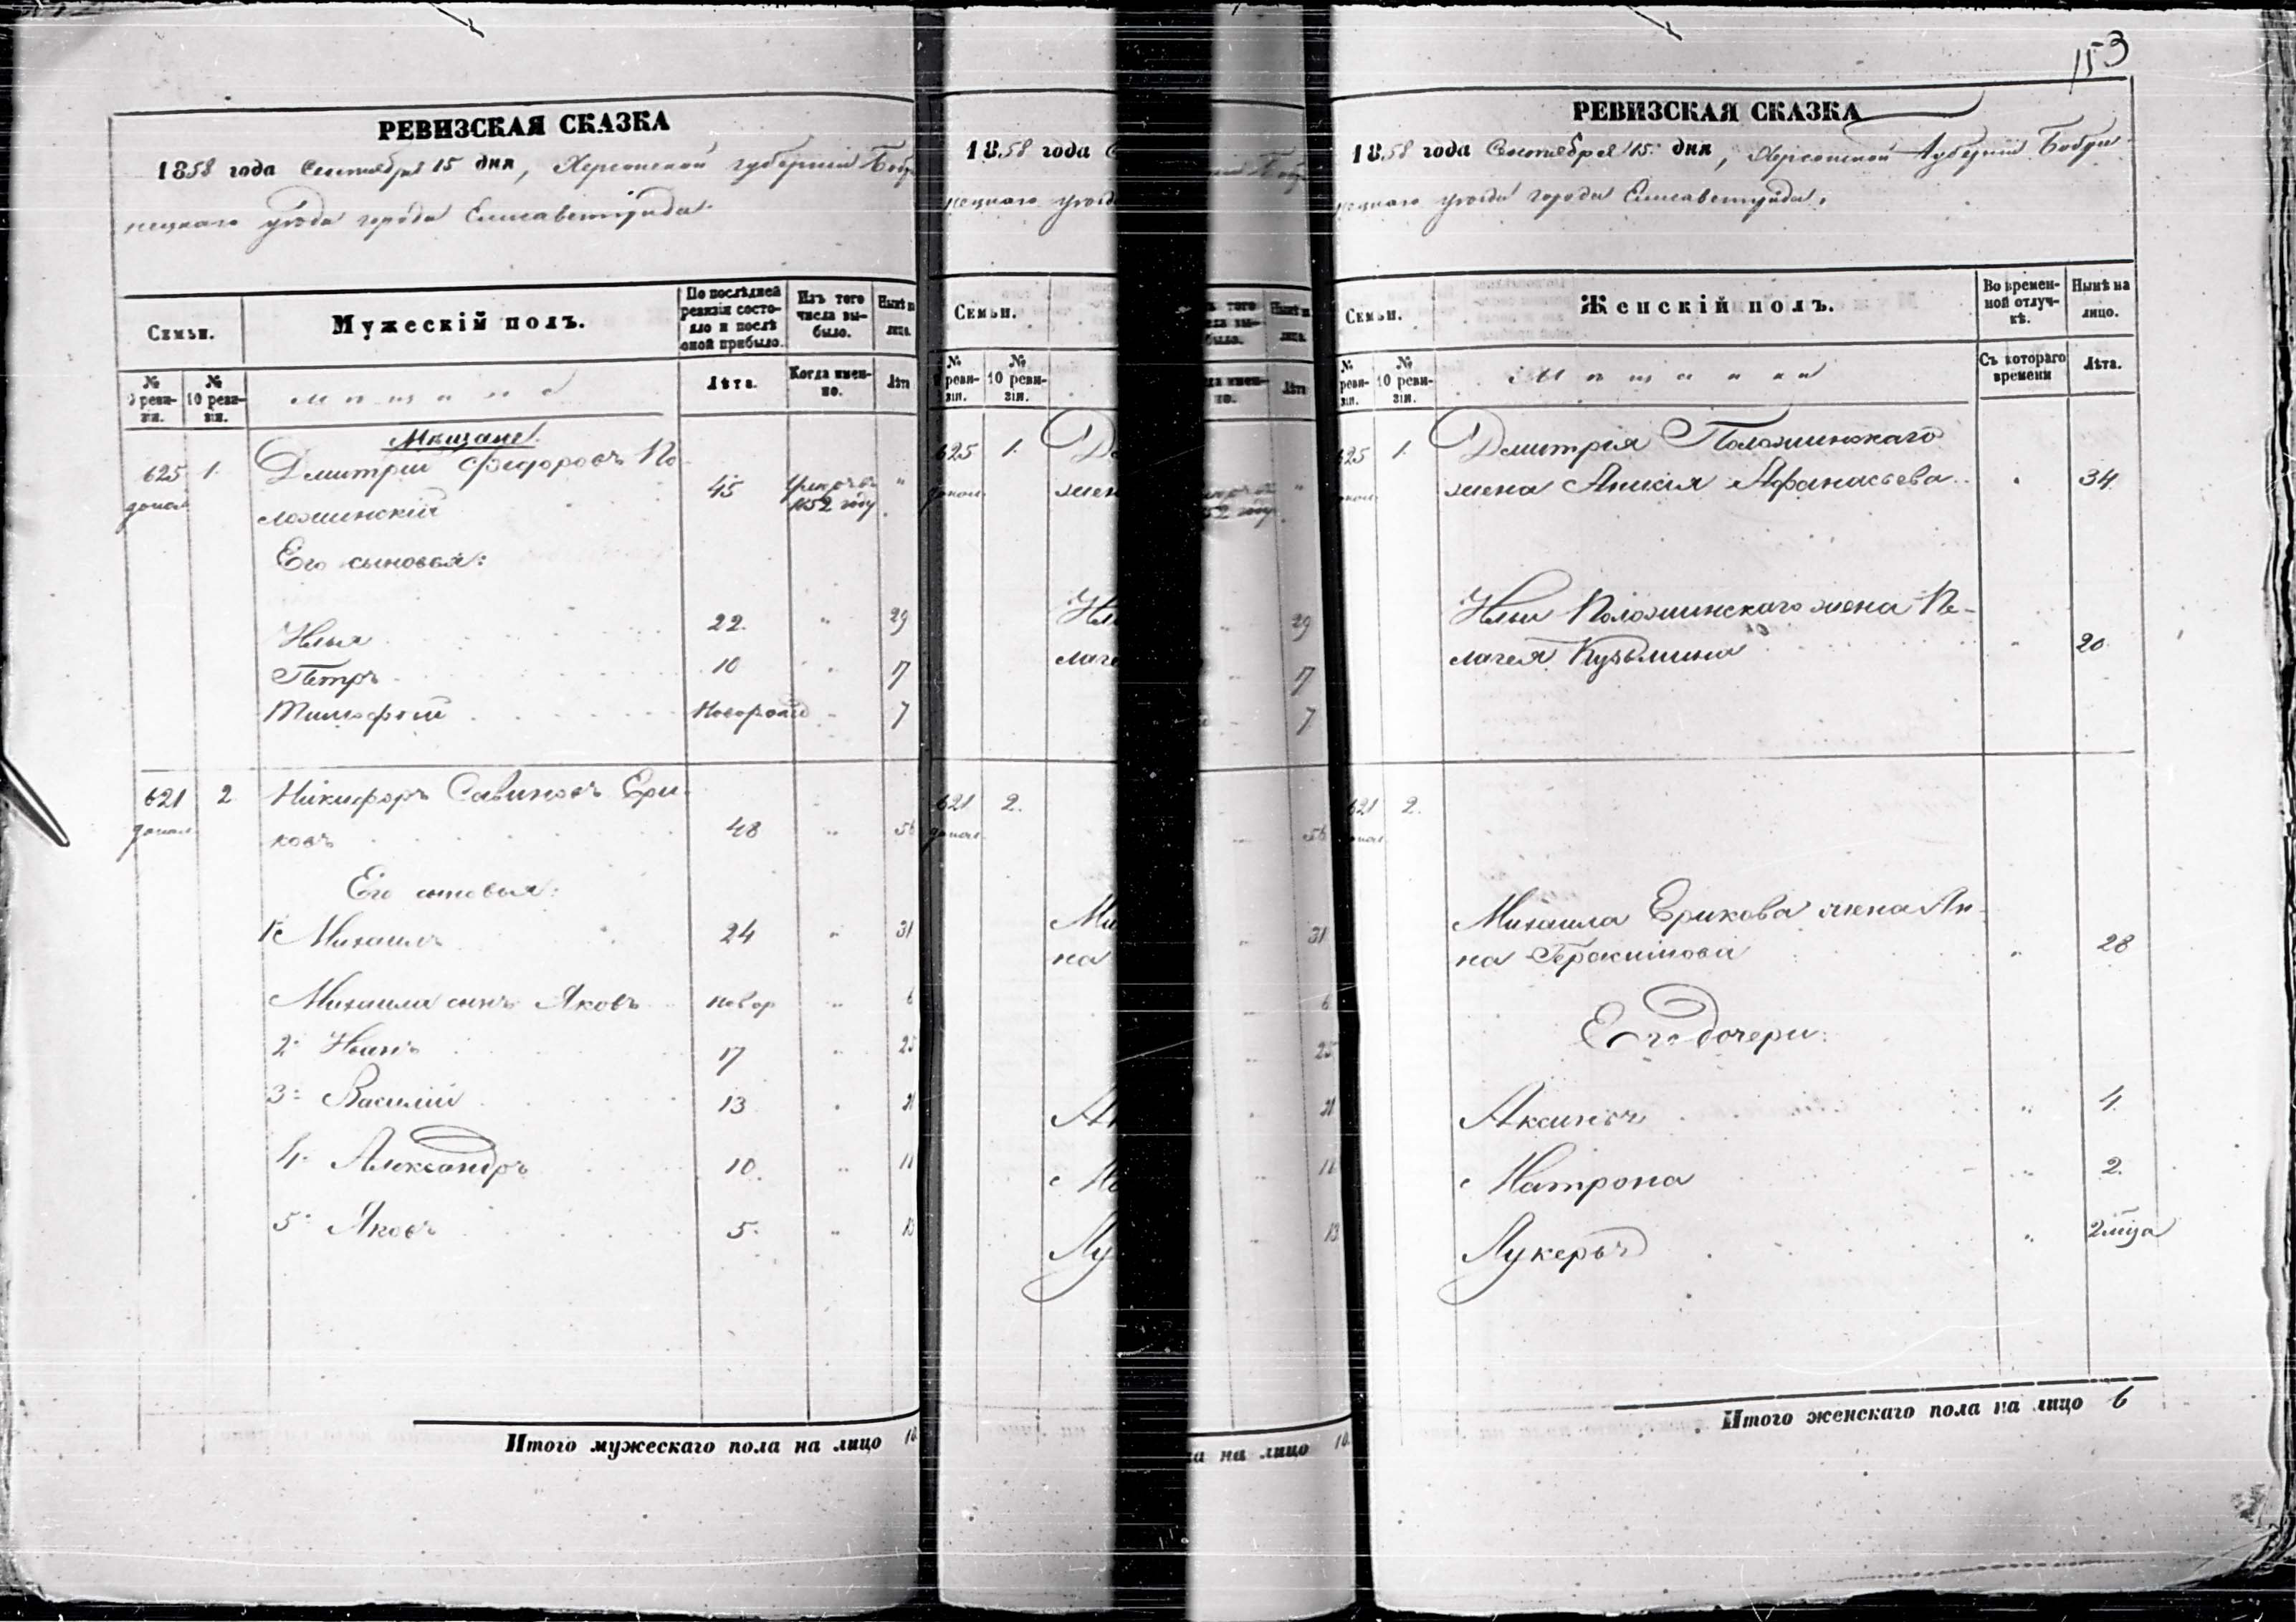 153
РЕВИЗСКАЯ СКАЗКА
1858 года Сентября 15 дня, Херсонской губерніи Бобри
нецкаго уѣзда города Елисаветграда.
Семьи.
Мужескій полъ.
По послѣдней ревизіи состояло и послѣ оной прибыло.
Изъ того числа выбыло.
Нынѣ н лицо.
№ 9 ревизіи.
№ 10 ревизіи.
Мѣщане
Лѣта.
Когда именно.
Лѣта
Мѣщане.
625 1. Дмитрій Федоровъ По
допол. ложинскій 45 Умеръ въ 1852 году "
Его сыновья:
Илья 22. " 29
Петръ 10 " 17
Тимофей Новорожд " 7
621 2 Никифоръ Савиновъ Ери-
допол. ковъ 48 " 56
Его сыновья:
1й Михаилъ 24 " 31
Михаила сынъ Яковъ новор " 6
2. Иванъ 17 " 25
3. Василій 13 " 21
4. Александръ 10. " 18
5. Яковъ 5. " 13
Итого мужескаго пола на лицо 10.
1858 года С
нецкаго уѣзд
Семьи.
№ 9 ревизіи.
№ 10 ревизіи.
625 1. Д
допол. жен
Иль
лаге
621 2.
допол.
Ми
на
Ак
Ма
Лу
29
17
7
56
31
6
25
21
18
13
на лицо 10.
РЕВИЗСКАЯ СКАЗКА
1858 года Сентября 15. дня, Херсонской Губерніи Бобри-
нецкаго уѣзда города Елисаветграда.
Семьи.
Женскій полъ.
Во временной отлучкѣ.
Нынѣ на лицо.
№ ревизіи.
№ 10 ревизіи.
Мѣщанки
Съ котораго времени
Лѣта.
625 1. Дмитрія Положинскаго
жена Аникія Афанасьева " 34.
Ильи Положинскаго жена Пе-
лагея Кузьмина " 20.
621 2.
Михаила Ерикова жена Ан-
на Герасимова " 28
Его дочери:
Аксинья " 4.
Матрона " 2.
Лукерья " 2 мѣсца
Итого женскаго пола на лицо 6